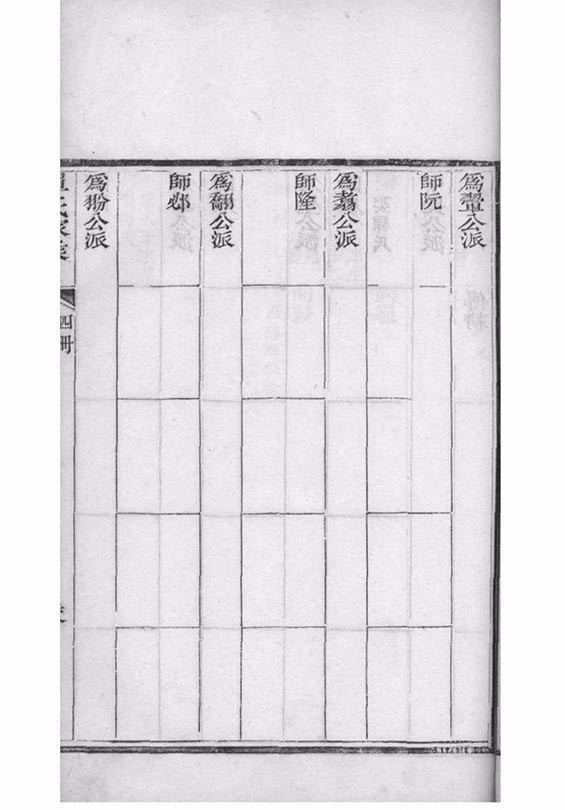 爲翬公派
師阮
爲翥公派
師隆
爲翻公派
師
爲翂公派
四冊